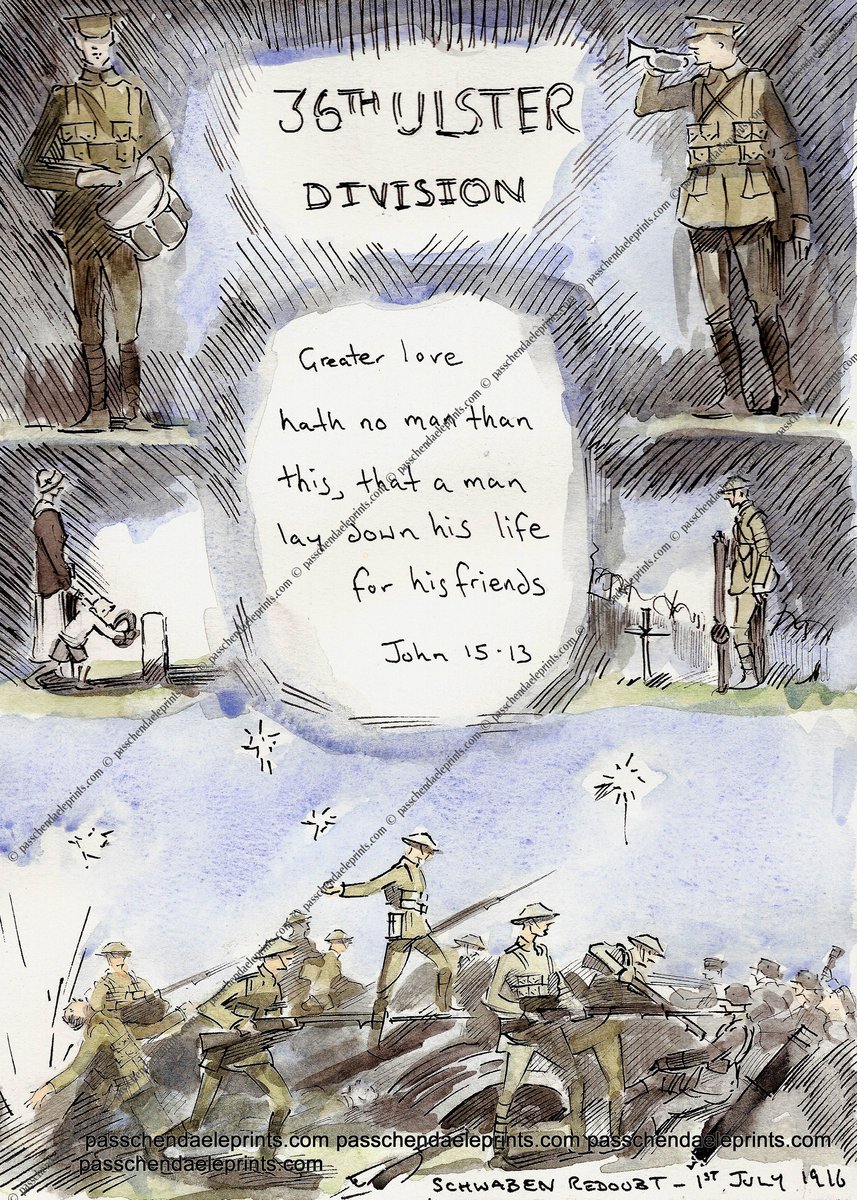 36TH ULSTER
DIVISION
Greater love
hath no man than
this, that a man
lay down his life
for his friends
John 15·13
© passchendaeleprints.com © passchendaeleprints.com © passchendaeleprints.com © passchendaeleprints.com © passchendaeleprints.com
passchendaeleprints.com passchendaeleprints.com passchendaeleprints.com
passchendaeleprints.com
SCHWABEN REDOUBT – 1ST JULY 1916